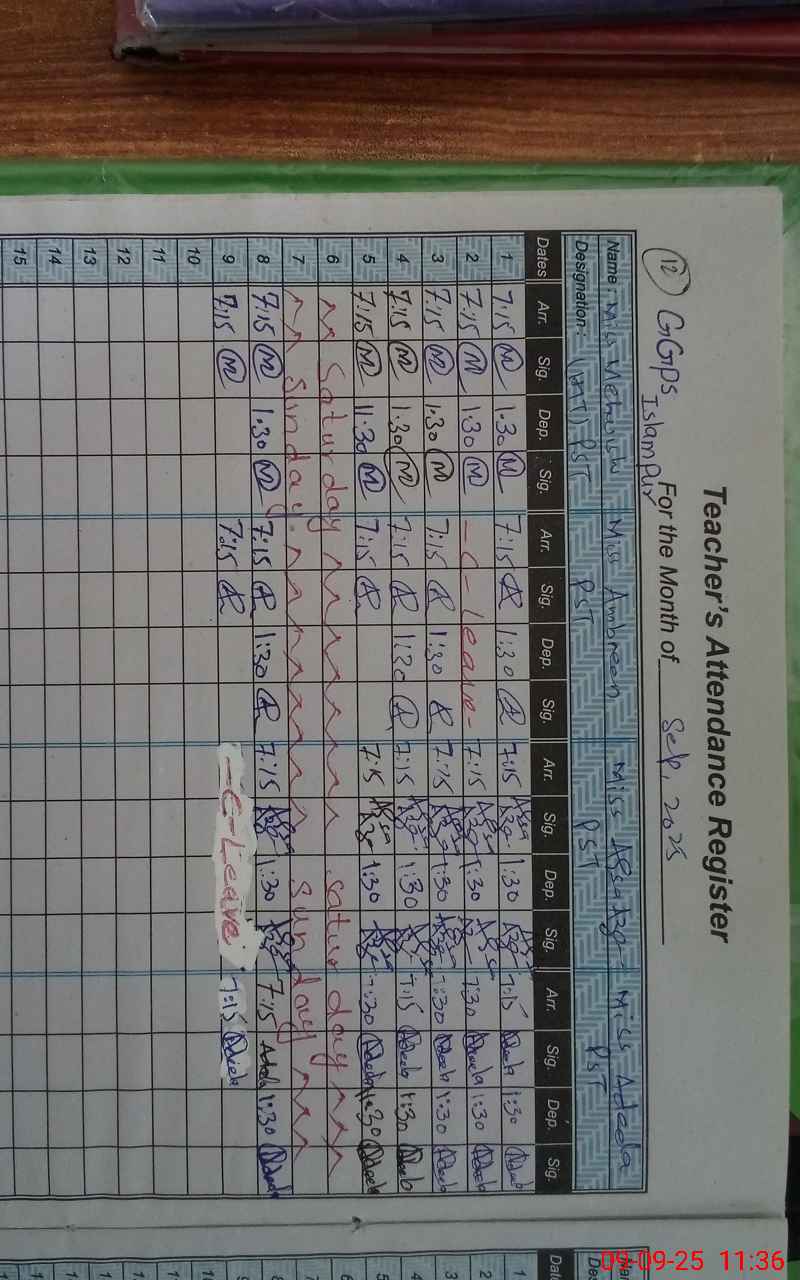 Teacher's Attendance Register
12 GGPS Islampur For the Month of Sep, 2025
Name : Miss Mehwish Miss Ambreen Miss Afsa Miss Adeela
Designation : PST PST PST PST
Dates Arr. Sig. Dep. Sig. Arr. Sig. Dep. Sig. Arr. Sig. Dep. Sig. Arr. Sig. Dep. Sig.
1 7:15 M 1:30 M 7:15 1:30 7:15 1:30 7:15 Adeela 1:30 Adeela
2 7:15 M 1:30 M - C - Leave - 7:15 1:30 7:30 Adeela 1:30 Adeela
3 7:15 M 1:30 M 7:15 1:30 7:15 1:30 7:30 Adeela 1:30 Adeela
4 7:15 M 1:30 M 7:15 1:30 7:15 1:30 7:15 Adeela 1:30 Adeela
5 7:15 M 11:30 M 7:15 7:15 1:30 7:30 Adeela 1:30 Adeela
6 Saturday Saturday
7 Sunday Sunday
8 7:15 M 1:30 M 7:15 1:30 7:15 1:30 7:15 Adeela 1:30 Adeela
9 7:15 M 7:15 - C - Leave 7:15 Adeela
10
11
12
13
14
15
Name
Des
Dat
1
2
3
4
5
6
7
8
9
10
09-09-25 11:36